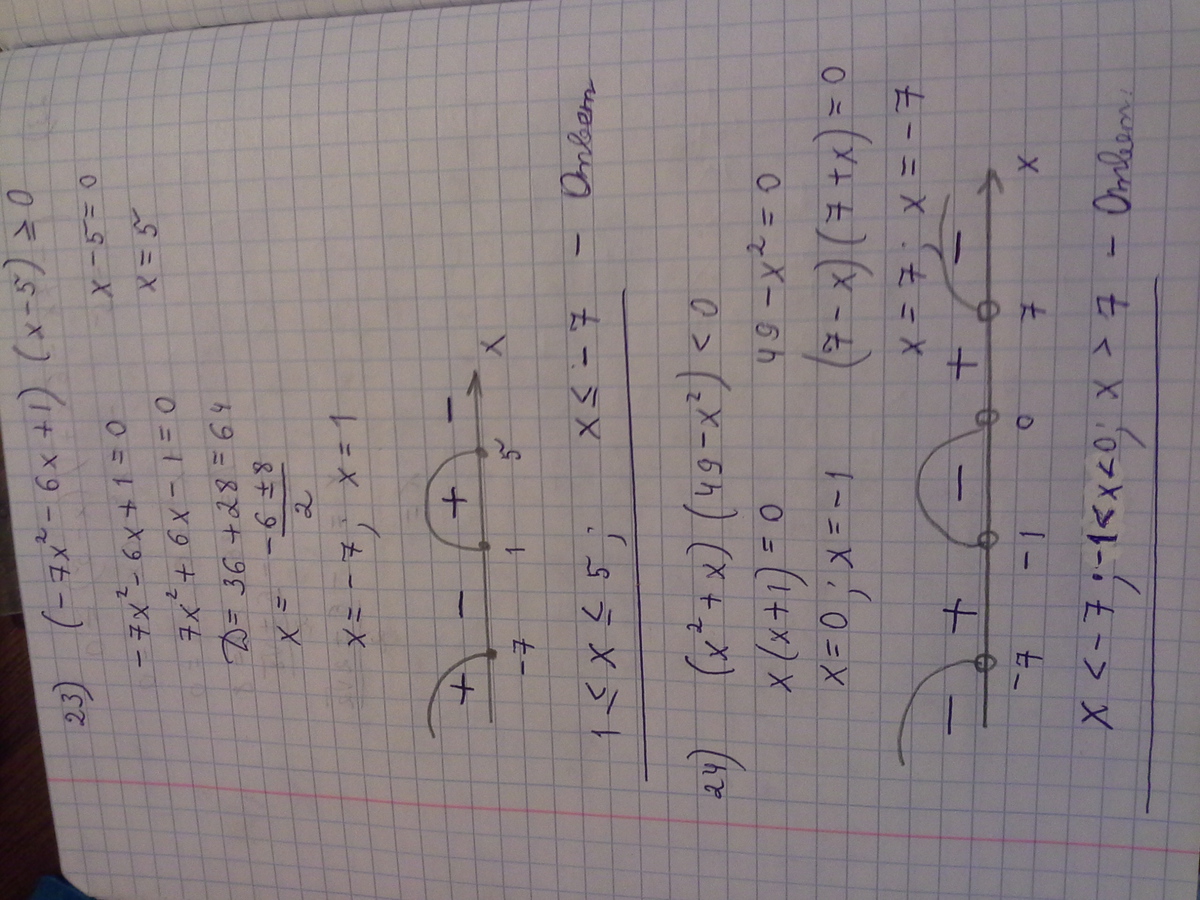 23) (-7x² - 6x + 1) (x - 5) ≥ 0
-7x² - 6x + 1 = 0 x - 5 = 0
7x² + 6x - 1 = 0 x = 5
D = 36 + 28 = 64
x = (-6 ± 8)/2
x = -7; x = 1
+ - + -
-7 1 5 x
1 ≤ x ≤ 5; x ≤ -7 - Ответ
24) (x² + x) (49 - x²) < 0
x(x + 1) = 0 49 - x² = 0
x = 0; x = -1 (7 - x)(7 + x) = 0
x = 7; x = -7
- + - + -
-7 -1 0 7 x
x < -7; -1 < x < 0; x > 7 - Ответ.